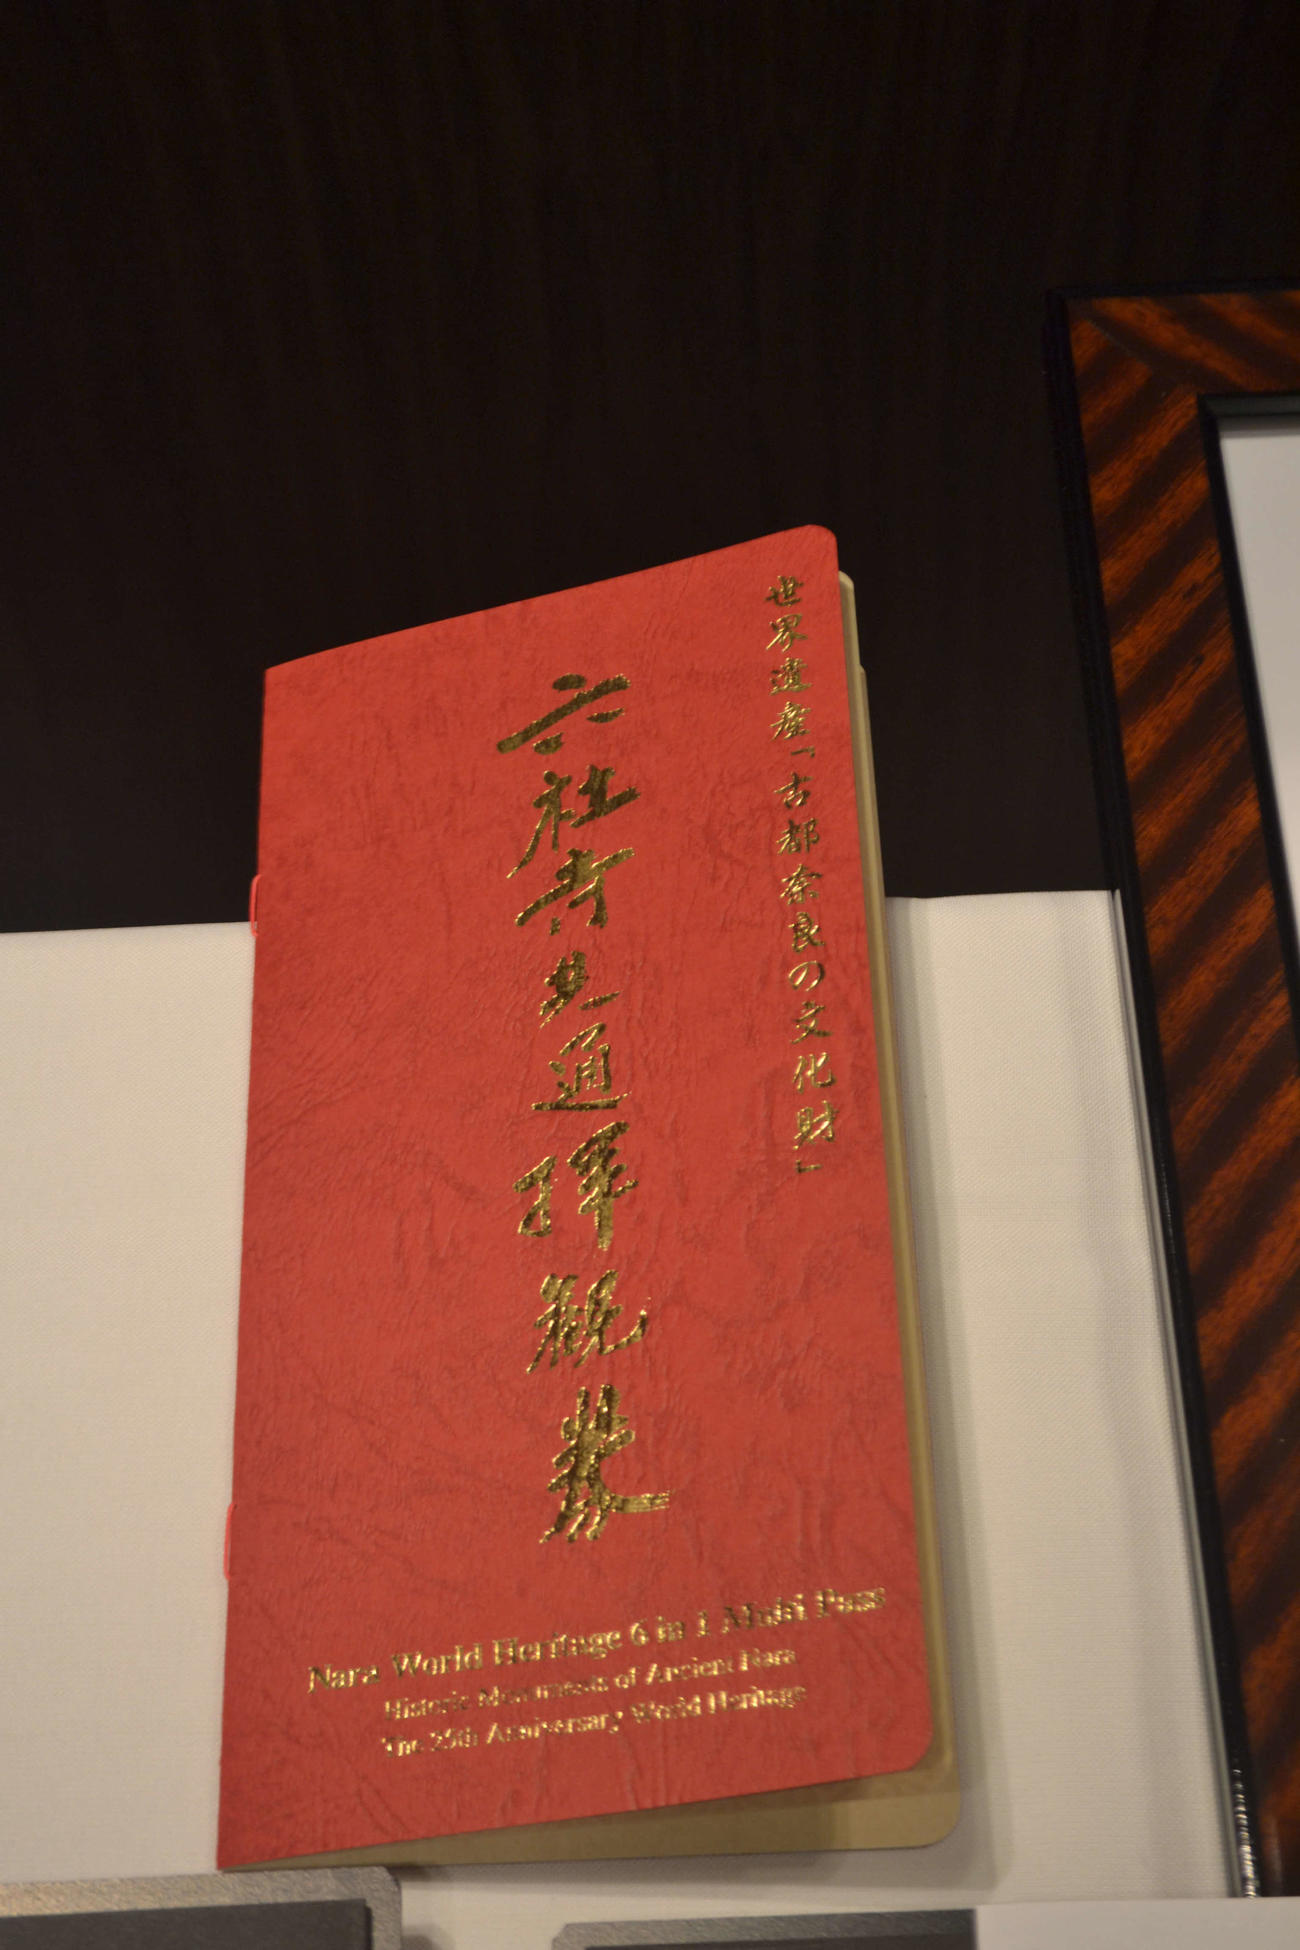 世界遺産「古都奈良の文化財」
六社寺共通拝観券
Nara World Heritage 6 in 1 Multi Pass
Historic Monuments of Ancient Nara
The 25th Anniversary World Heritage